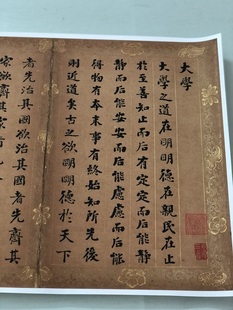 大學
大學之道在明明德在親民在止
於至善知止而后有定定而后能靜
靜而后能安安而后能慮慮而后能
得物有本末事有終始知所先後
則近道矣古之欲明明德於天下
者先治其國欲治其國者先齊其
家欲齊其家